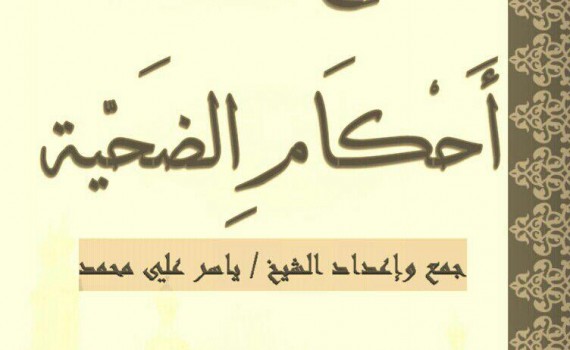 أَحْكَامِ الضَحَّية
جمع وإعداد الشيخ / ياسر علي محمد